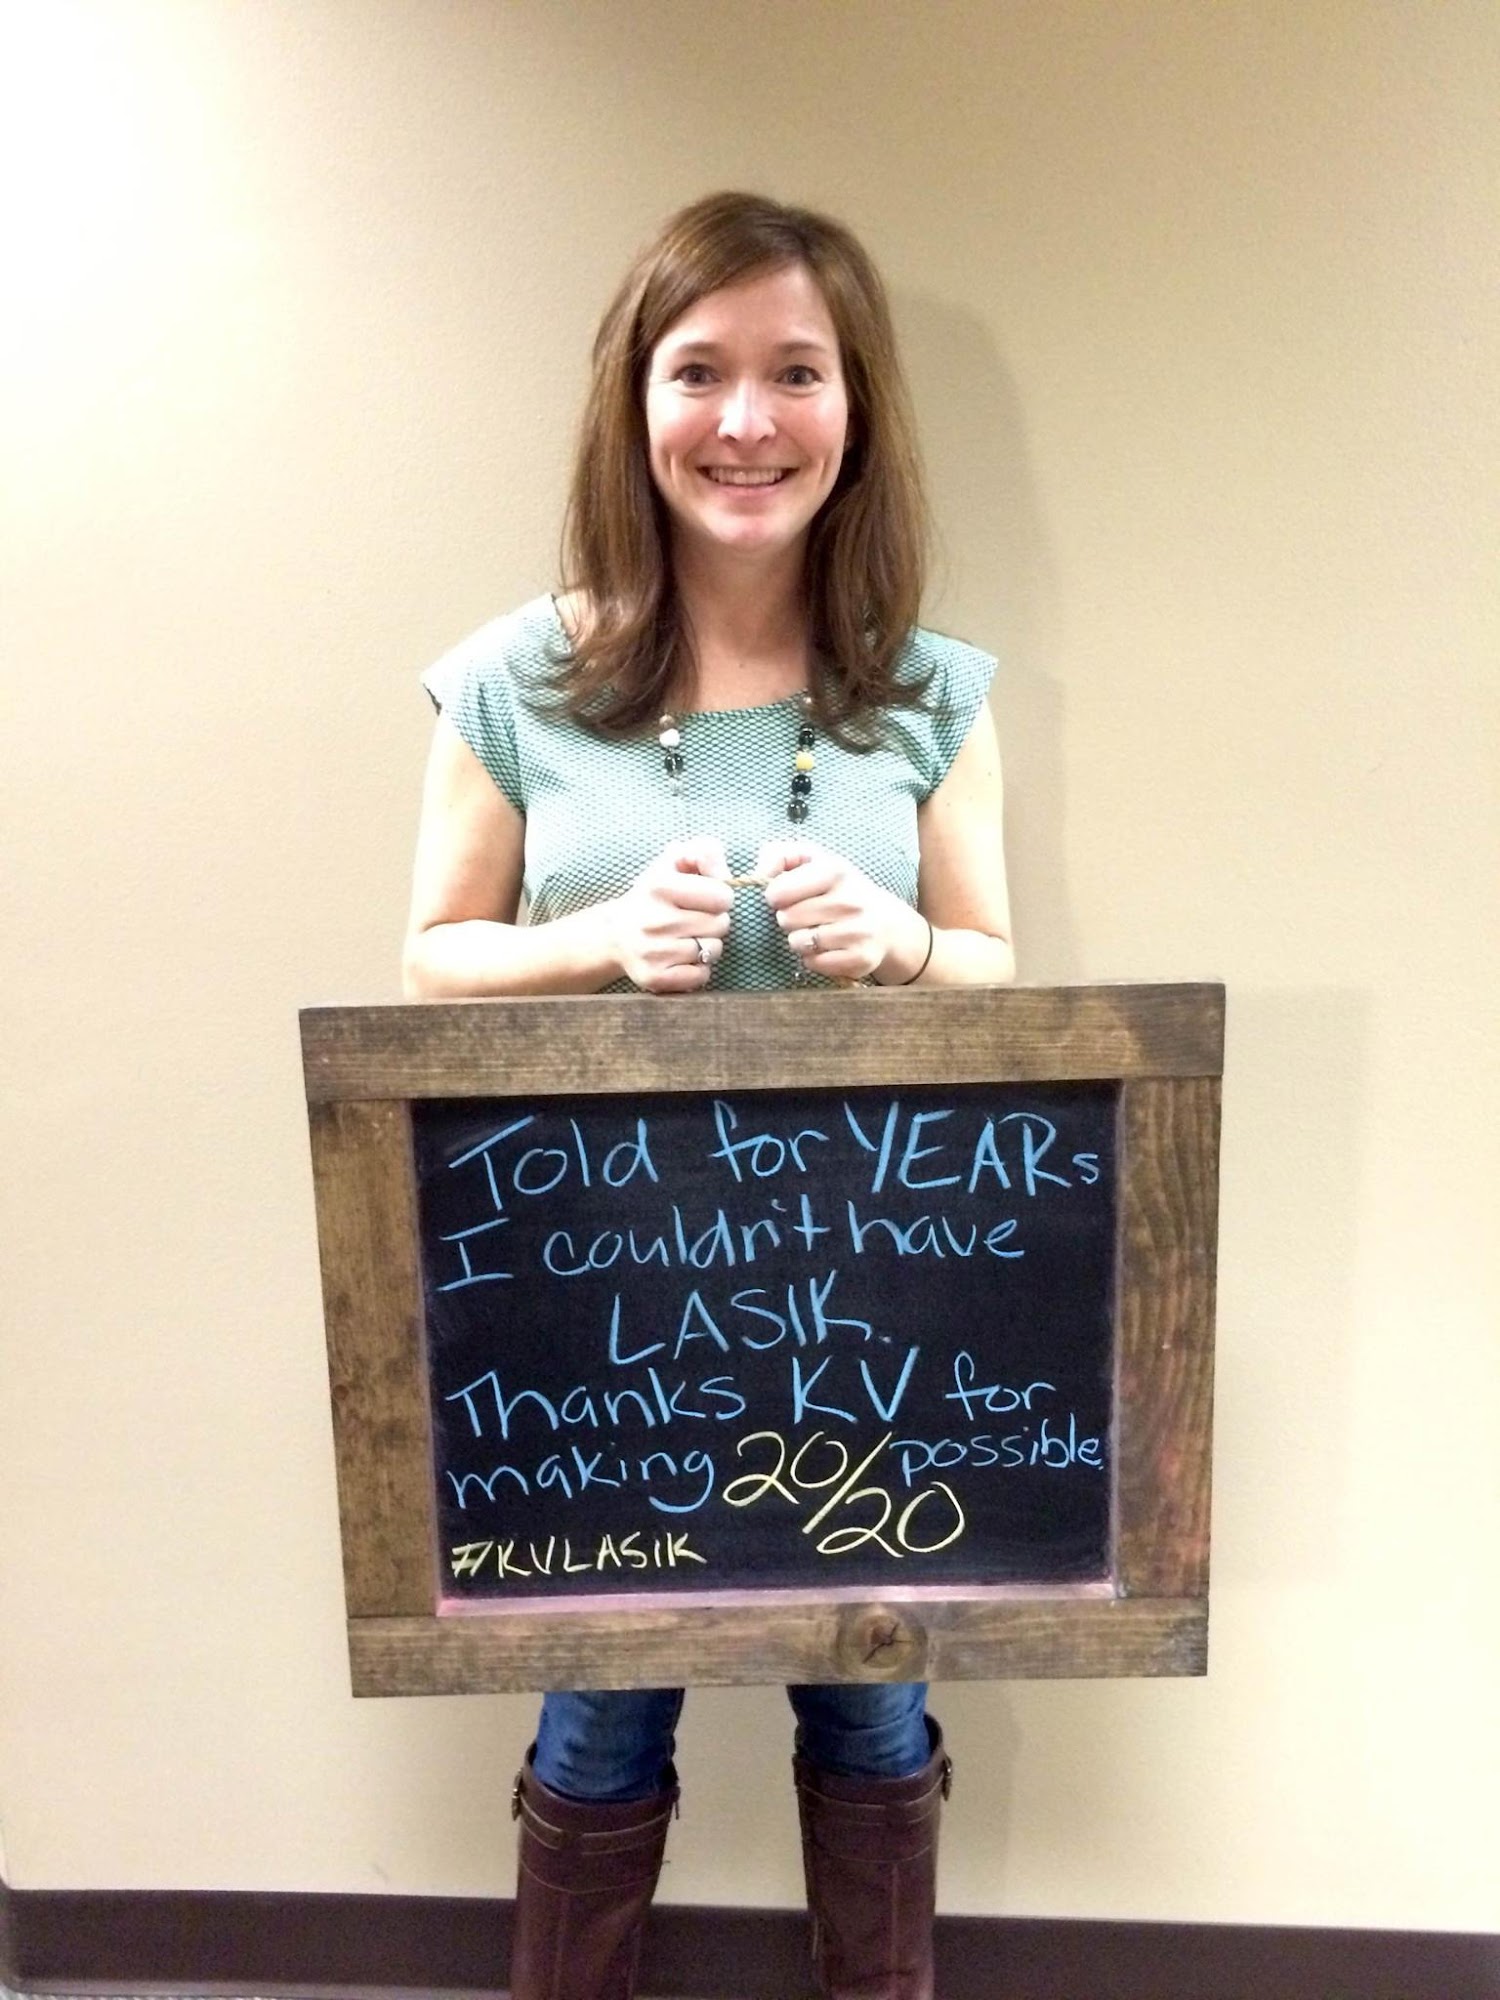 Told for YEARs
I couldn't have
LASIK.
Thanks KV for
making 20/20 possible.
#KVLASIK